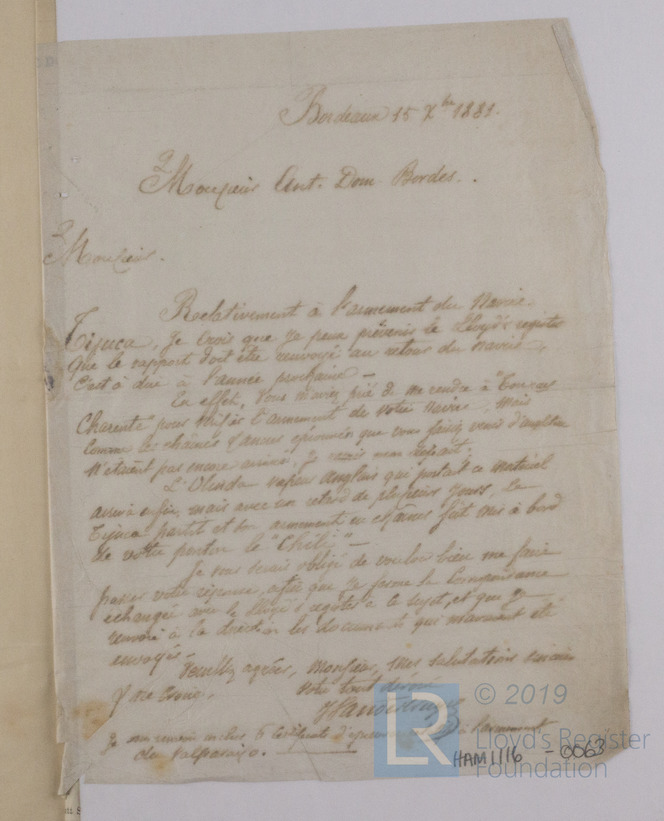 Bordeaux 15 Xbre 1881.
Monsieur Ant. Dom Bordes.
Monsieur.
Relativement à l'armement du Navire
Tijuca, je crois que je peux prévenir le Lloyd's register
que le rapport doit être renvoyé au retour du navire,
c'est à dire à l'année prochaine —
En effet, vous m'aviez prié de me rendre à Tonnay
Charente pour l'armement de votre navire, mais
comme les chaînes d'ancres éprouvées que vous faisiez venir d'angleterre
n'étaient pas encore arrivé, je
L'Olinda vapeur anglais qui portait ce matériel
arriva enfin, mais avec un retard de plusieurs jours, le
Tijuca partit et son armement en chaînes fut mis à bord
de votre ponton le "Chili" —
Je vous serais obligé de vouloir bien me faire
passer votre réponse, afin que je ferme la correspondance
échangée avec le Lloyd's register à ce sujet, et que je
renvoie à la direction les documents qui m'avaient été
envoyés.
Veuillez agréer, Monsieur, mes salutations
votre tout dévoué
de Valparaiso.
© 2019
Lloyd's Register
Foundation
LR
HAM1/16 - 0063